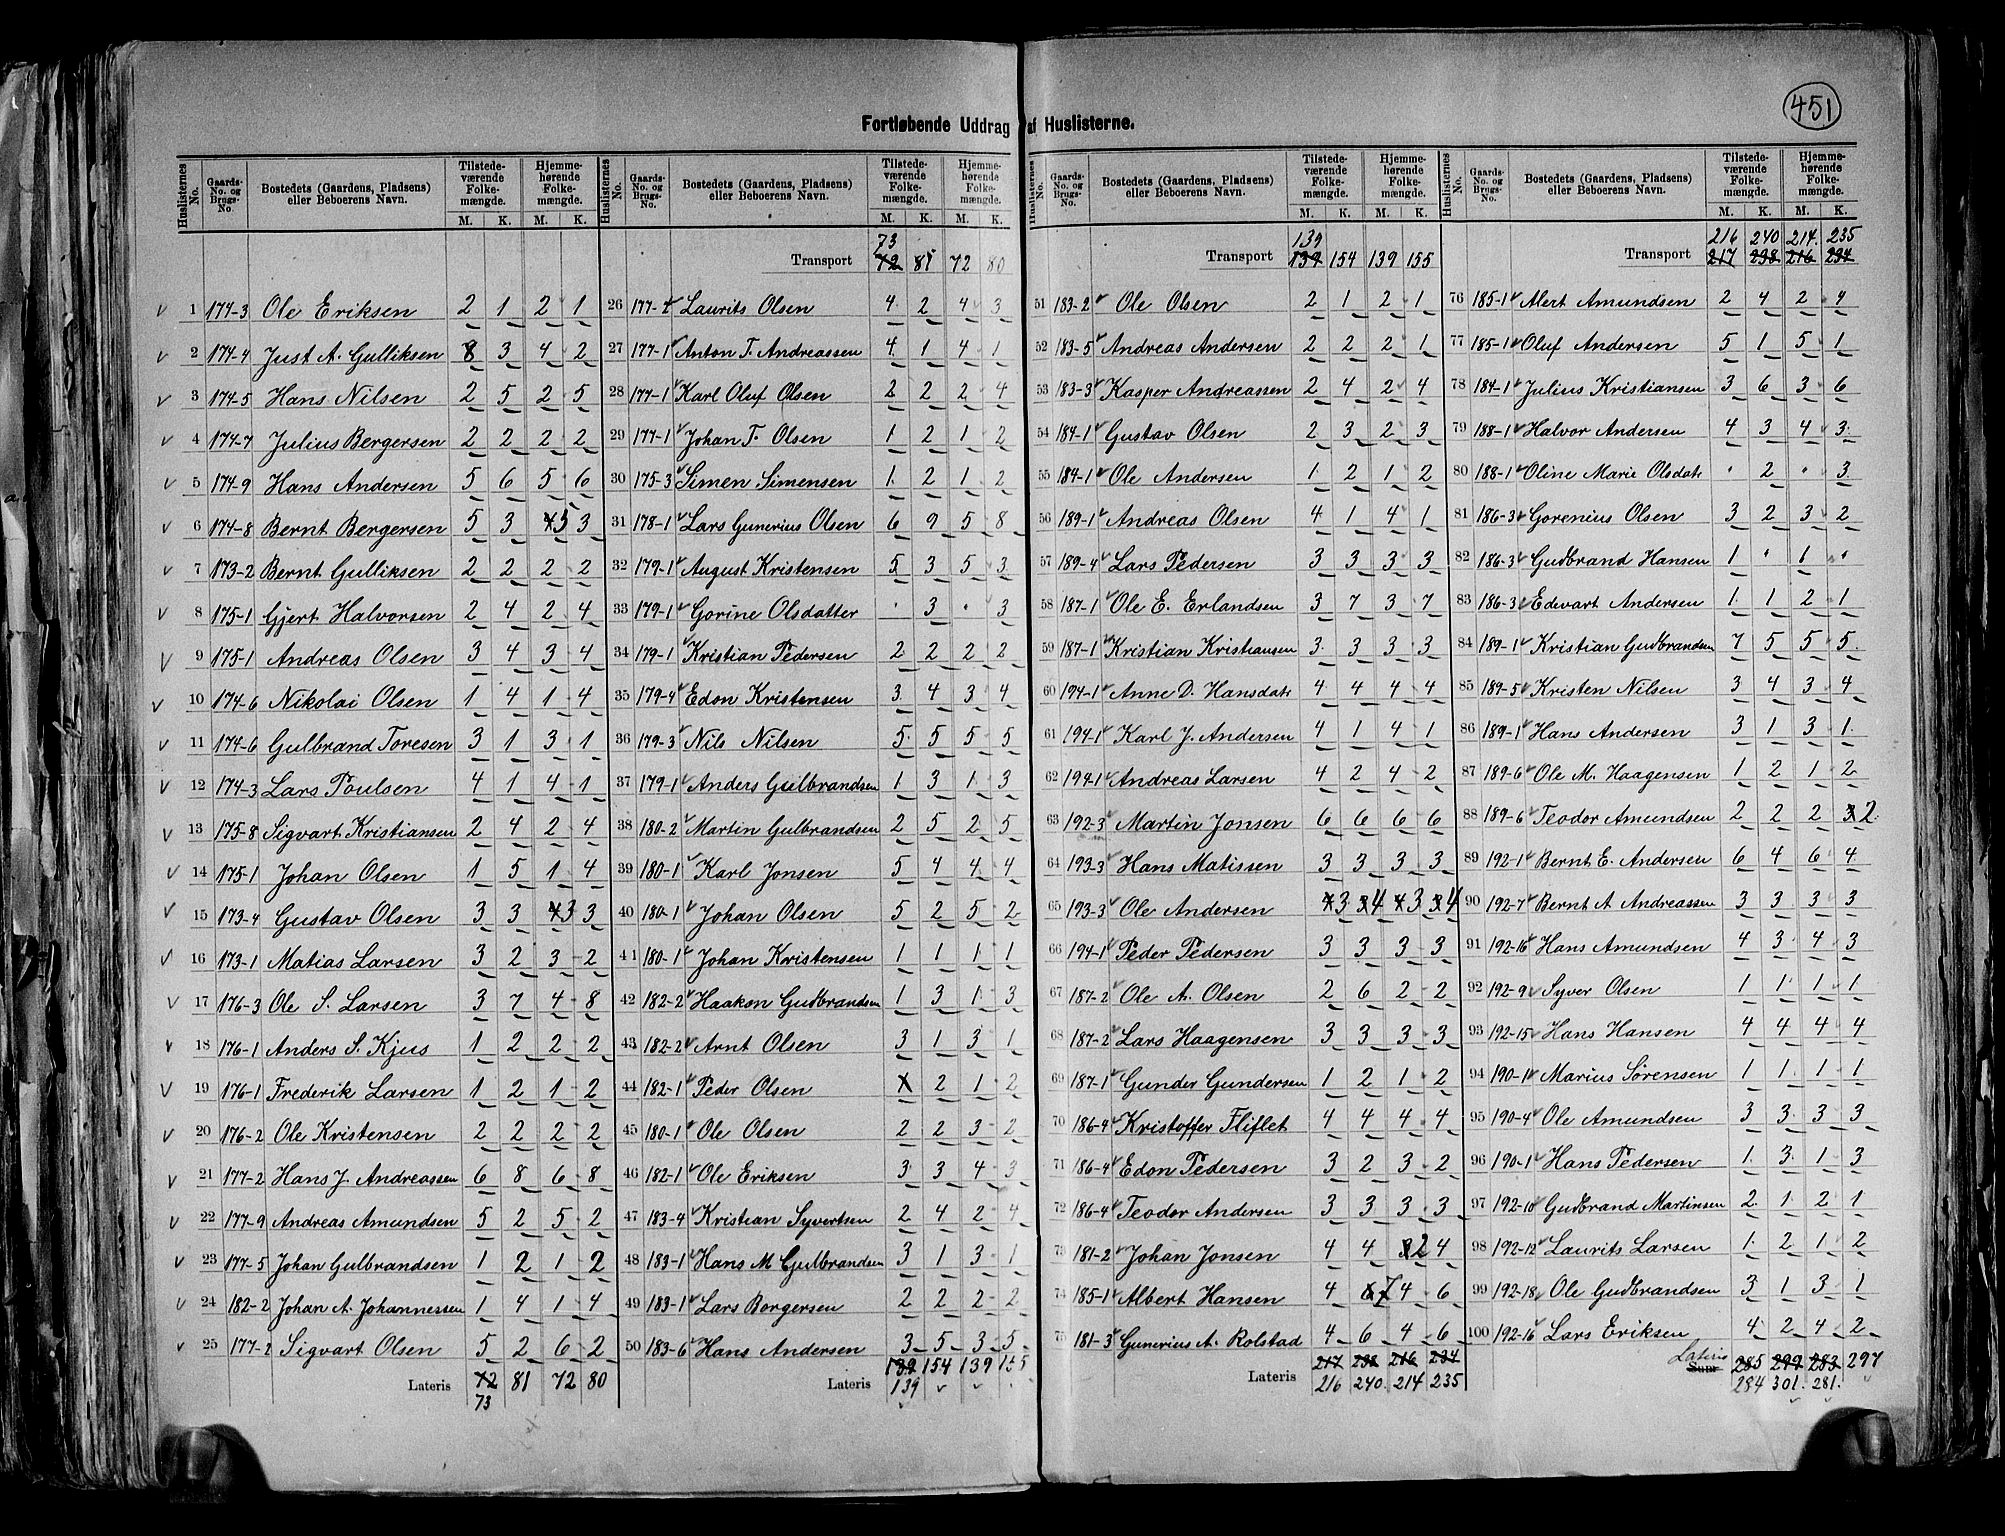 451
Fortløbende Uddrag af Huslisterne.
Huslisternes No. | Gaards-No. og Brugs-No. | Bostedets (Gaardens, Pladsens) eller Beboerens Navn. | Tilstedeværende Folkemængde. M. K. | Hjemmehørende Folkemængde. M. K.
1 174-3 Ole Eriksen 2 1 2 1
2 174-4 Just A. Gulliksen 8 3 4 2
3 174-5 Hans Nilsen 2 5 2 5
4 174-7 Julius Bergersen 2 2 2 2
5 174-9 Hans Andersen 5 6 5 6
6 174-8 Bernt Bergersen 5 3 4 5 3
7 173-2 Bernt Gulliksen 2 2 2 2
8 175-1 Gjert Halvorsen 2 4 2 4
9 175-1 Andreas Olsen 3 4 3 4
10 174-6 Nikolai Olsen 1 4 1 4
11 174-6 Gulbrand Toresen 3 1 3 1
12 174-3 Lars Poulsen 4 1 4 1
13 175-8 Sigvart Kristiansen 2 4 2 4
14 175-1 Johan Olsen 1 5 1 4
15 173-4 Gustav Olsen 3 3 4 3 3
16 173-1 Matias Larsen 3 2 3 2
17 176-3 Ole S. Larsen 3 7 4 8
18 176-1 Anders S. Kjus 1 2 2 2
19 176-1 Frederik Larsen 1 2 1 2
20 176-2 Ole Kristensen 2 2 2 2
21 177-2 Hans J. Andreassen 6 8 6 8
22 177-9 Andreas Amundsen 5 2 5 2
23 177-5 Johan Gulbrandsen 1 2 1 2
24 182-2 Johan A. Johannessen 1 4 1 4
25 177-2 Sigvart Olsen 5 2 6 2
Lateris 72 81 72 80
73
Huslisternes No. | Gaards-No. og Brugs-No. | Bostedets (Gaardens, Pladsens) eller Beboerens Navn. | Tilstedeværende Folkemængde. M. K. | Hjemmehørende Folkemængde. M. K.
73
Transport 72 81 72 80
26 177-2 Laurits Olsen 4 2 4 3
27 177-1 Anton T. Andreassen 4 1 4 1
28 177-1 Karl Oluf Olsen 2 2 2 4
29 177-1 Johan T. Olsen 1 2 1 2
30 175-3 Simen Simensen 1 2 1 2
31 178-1 Lars Gunerius Olsen 6 9 5 8
32 179-1 August Kristensen 5 3 5 3
33 179-1 Gorine Olsdatter · 3 · 3
34 179-1 Kristian Pedersen 2 2 2 2
35 179-4 Edon Kristensen 3 4 3 4
36 179-3 Nils Nilsen 5 5 5 5
37 179-1 Anders Gulbrandsen 1 3 1 3
38 180-2 Martin Gulbrandsen 2 5 2 5
39 180-1 Karl Jonsen 5 4 4 4
40 180-1 Johan Olsen 5 2 5 2
41 180-1 Johan Kristensen 1 1 1 1
42 182-2 Haakon Gudbrandsen 1 3 1 3
43 182-2 Arnt Olsen 3 1 3 1
44 182-1 Peder Olsen 2 1 2
45 180-1 Ole Olsen 2 2 3 2
46 182-1 Ole Eriksen 3 3 4 3
47 183-4 Kristian Syvertsen 2 4 2 4
48 183-1 Hans M Gulbrandsen 3 1 3 1
49 183-1 Lars Borgersen 2 2 2 2
50 183-6 Hans Andersen 3 5 3 5
Lateris 139 154 139 155
139
Huslisternes No. | Gaards-No. og Brugs-No. | Bostedets (Gaardens, Pladsens) eller Beboerens Navn. | Tilstedeværende Folkemængde. M. K. | Hjemmehørende Folkemængde. M. K.
139
Transport 139 154 139 155
51 183-2 Ole Olsen 2 1 2 1
52 183-5 Andreas Andersen 2 2 2 1
53 183-3 Kasper Andreassen 2 4 2 4
54 184-1 Gustav Olsen 2 3 2 3
55 184-1 Ole Andersen 1 2 1 2
56 189-1 Andreas Olsen 4 1 4 1
57 189-4 Lars Pedersen 3 3 3 3
58 187-1 Ole E. Erlandsen 3 7 3 7
59 187-1 Kristian Kristiansen 3 3 3 3
60 194-1 Anne D. Hansdatr 4 4 4 4
61 194-1 Karl J. Andersen 4 1 4 1
62 194-1 Andreas Larsen 4 2 4 2
63 192-3 Martin Jonsen 6 6 6 6
64 193-3 Hans Matissen 3 3 3 3
65 193-3 Ole Andersen 4 3 3 4 4 3 3 4
66 194-1 Peder Pedersen 3 3 3 3
67 187-2 Ole A. Olsen 2 6 2 2
68 187-2 Lars Haagensen 3 3 3 3
69 187-1 Gunder Gundersen 1 2 1 2
70 186-4 Kristoffer Fliflet 4 4 4 4
71 186-4 Edon Pedersen 3 2 3 2
72 186-4 Teodor Andersen 3 3 3 3
73 181-2 Johan Jonsen 4 4 3 2 4
74 185-1 Albert Hansen 4 6 7 4 6
75 181-3 Gunerius A. Rolstad 4 6 4 6
Lateris 217 238 216 234
216 240 214 235
Huslisternes No. | Gaards-No. og Brugs-No. | Bostedets (Gaardens, Pladsens) eller Beboerens Navn. | Tilstedeværende Folkemængde. M. K. | Hjemmehørende Folkemængde. M. K.
216 240 214 235
Transport 217 238 216 234
76 185-1 Alert Amundsen 2 4 2 4
77 185-1 Oluf Andersen 5 1 5 1
78 184-1 Julius Kristiansen 3 6 3 6
79 188-1 Halvor Andersen 4 3 4 3
80 188-1 Oline Marie Olsdatr · 2 · 3
81 186-3 Gorenius Olsen 3 2 3 2
82 186-3 Gudbrand Hansen 1 · 1 ·
83 186-3 Edevart Andersen 1 1 2 1
84 189-1 Kristian Gudbrandsen 7 5 5 5
85 189-5 Kristen Nilsen 3 4 3 4
86 189-1 Hans Andersen 3 1 3 1
87 189-6 Ole M. Haagensen 1 2 1 2
88 189-6 Teodor Amundsen 2 2 2 3 2
89 192-1 Bernt E. Andersen 6 4 6 4
90 192-7 Bernt A Andreassen 3 3 3 3
91 192-16 Hans Amundsen 4 3 4 3
92 192-9 Syver Olsen 1 1 1 1
93 192-15 Hans Hansen 4 4 4 4
94 190-1 Marius Sørensen 1 1 1 1
95 190-4 Ole Amundsen 3 3 3 3
96 190-1 Hans Pedersen 1 3 1 3
97 192-10 Gudbrand Martinsen 2 1 2 1
98 192-12 Laurits Larsen 1 2 1 2
99 192-18 Ole Gudbrandsen 3 1 3 1
100 192-16 Lars Eriksen 4 2 4 2
Lateris
Sum 285 299 283 297
284 301 281